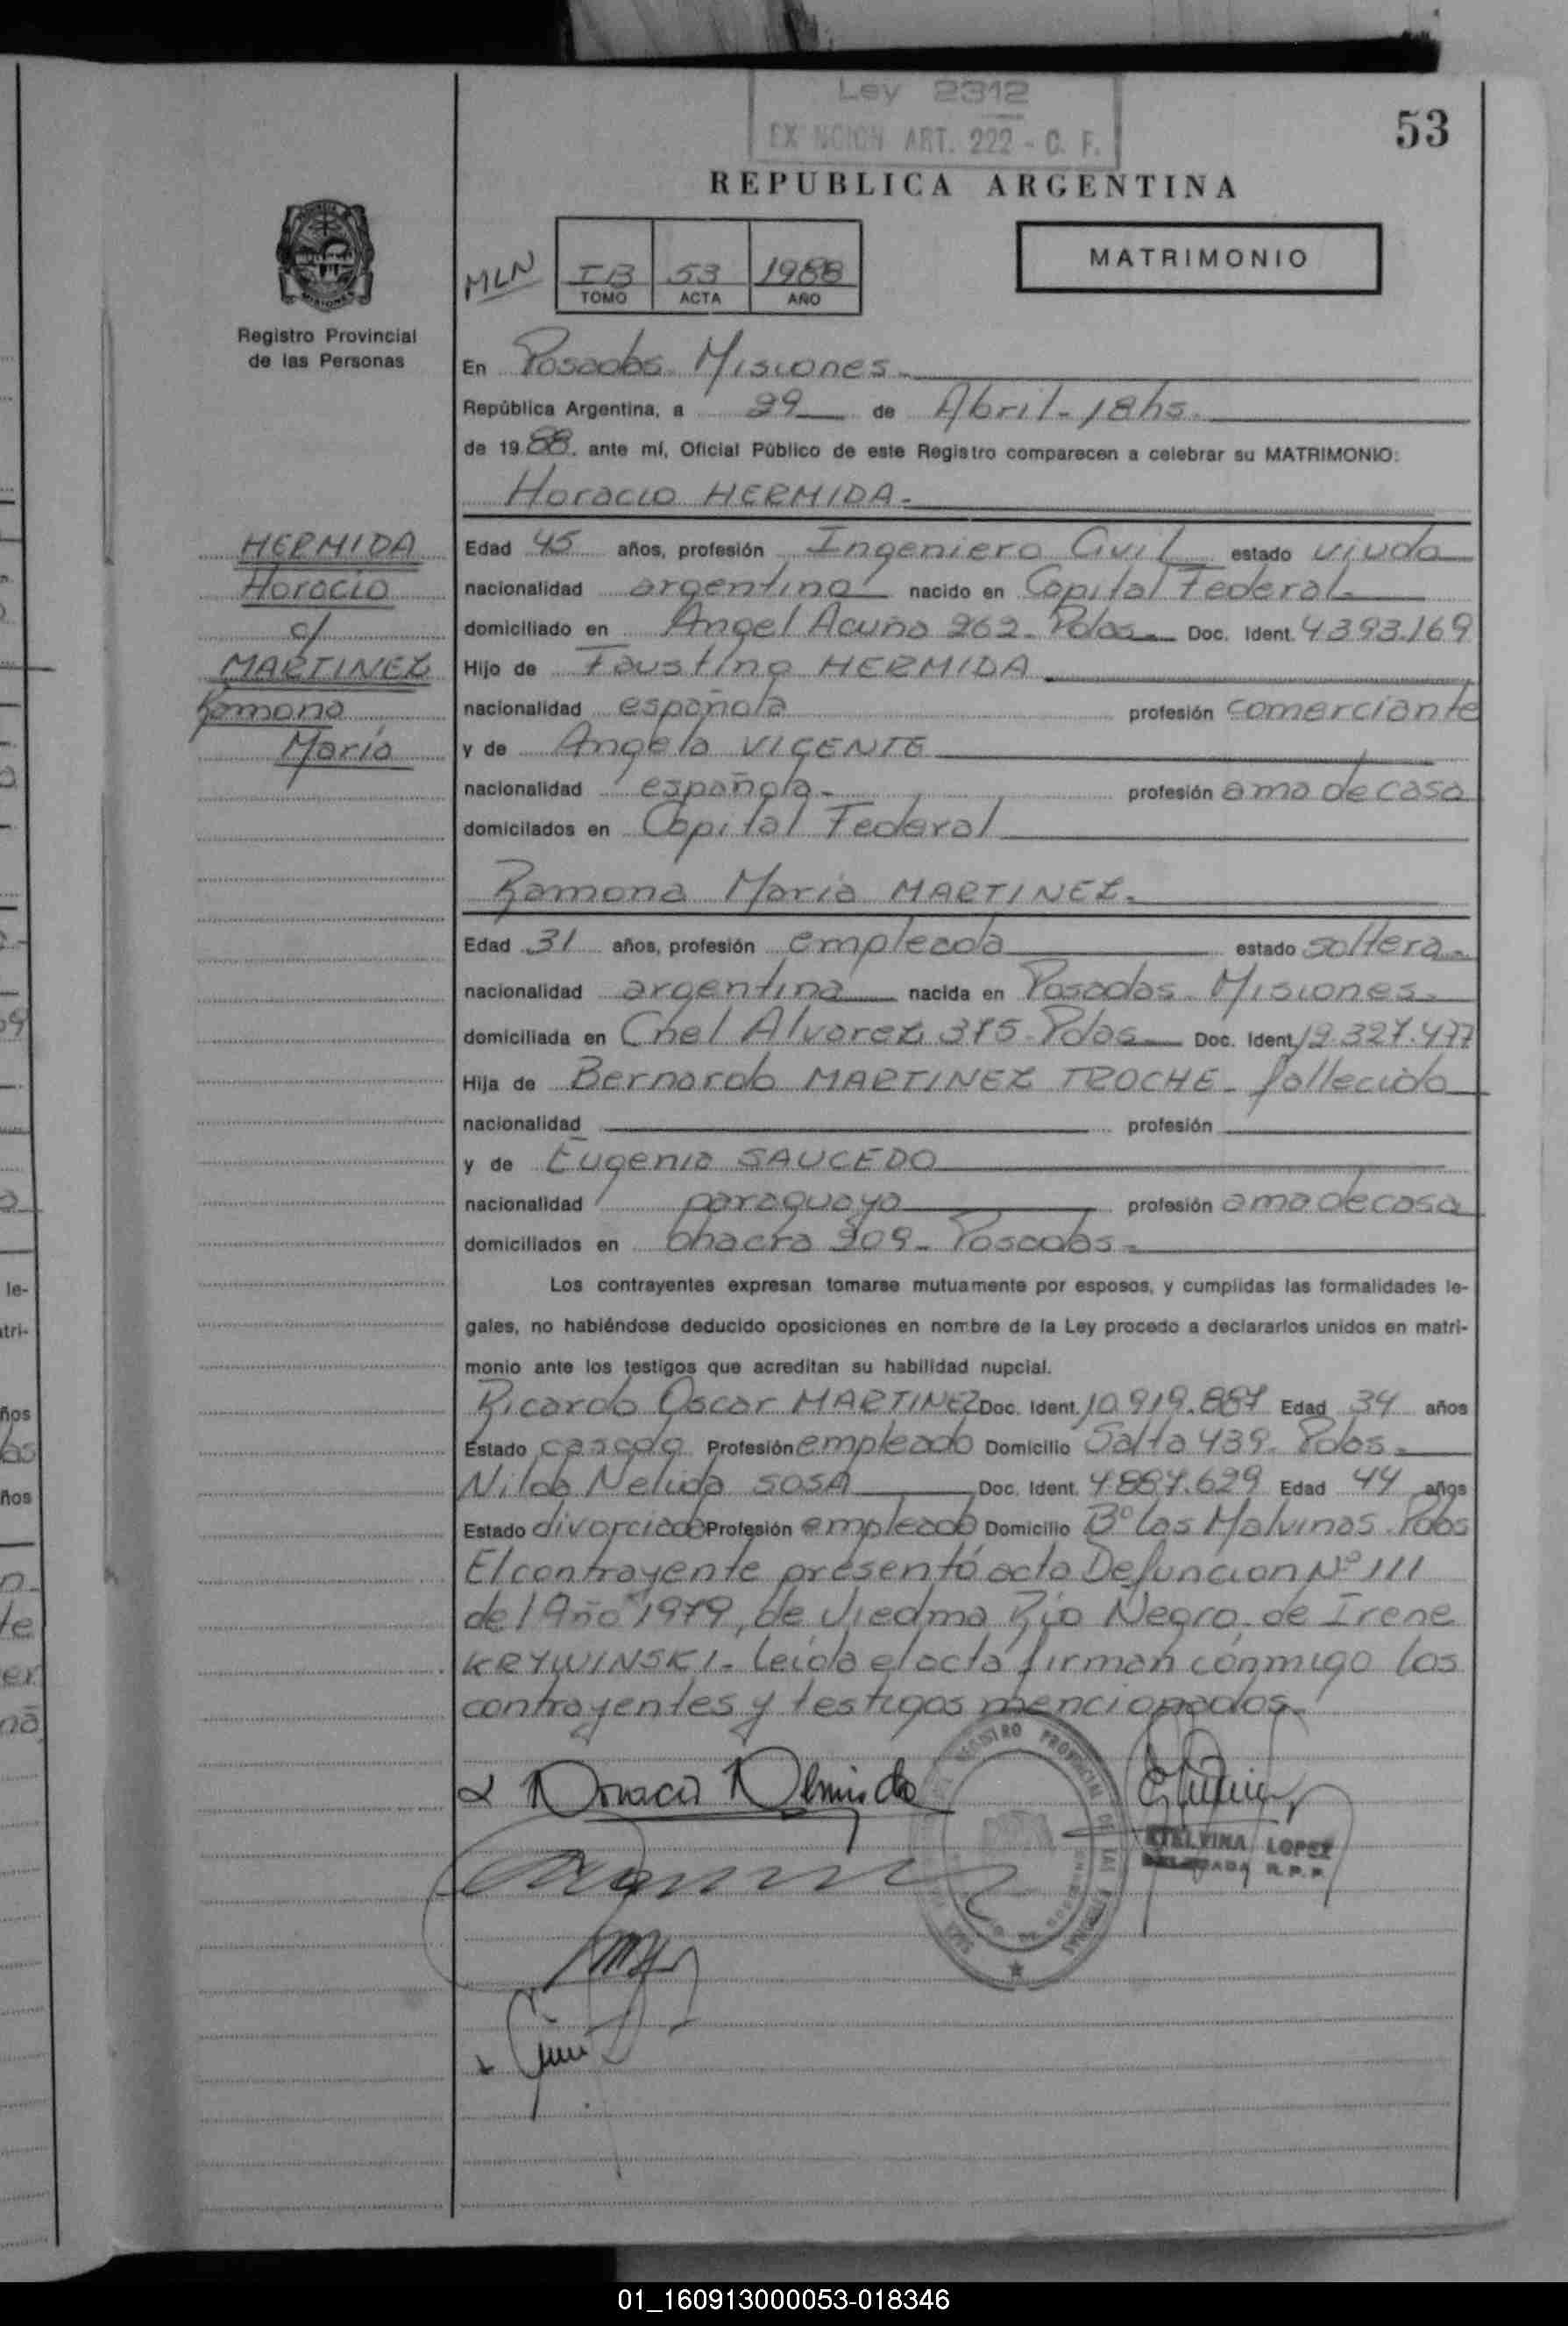 Ley 2312
ART. 222 - C. F.
53
REPUBLICA ARGENTINA
MLN
I B 53 1988
TOMO ACTA AÑO
MATRIMONIO
Registro Provincial
de las Personas
En Posadas Misiones
República Argentina, a 29 de Abril - 18 hs.
de 1988. ante mí, Oficial Público de este Registro comparecen a celebrar su MATRIMONIO:
Horacio HERMIDA.-
HERMIDA
Horacio
c/
MARTINEZ
Ramona
María
Edad 45 años, profesión Ingeniero Civil estado viudo
nacionalidad argentina nacido en Capital Federal.
domiciliado en Angel Acuña 262 - Pdas. Doc. Ident. 4393.169
Hijo de Faustino HERMIDA
nacionalidad española profesión comerciante
y de Angela VICENTE
nacionalidad española.- profesión ama de casa
domicilados en Capital Federal
Ramona María MARTINEZ.-
Edad 31 años, profesión empleada estado soltera.-
nacionalidad argentina nacida en Posadas - Misiones.-
domiciliada en Cnel Alvarez 375 - Pdas. Doc. Ident. 12.327.477
Hija de Bernardo MARTINEZ TROCHE - fallecido
nacionalidad profesión
y de Eugenia SAUCEDO
nacionalidad paraguaya profesión ama de casa
domiciliados en Chacra 209 - Posadas.-
Los contrayentes expresan tomarse mutuamente por esposos, y cumplidas las formalidades le-
gales, no habiéndose deducido oposiciones en nombre de la Ley procedo a declararlos unidos en matri-
monio ante los testigos que acreditan su habilidad nupcial.
Ricardo Oscar MARTINEZ Doc. Ident. 10.919.887 Edad 34 años
Estado casado Profesión empleado Domicilio Salta 439 - Pdas.-
Nilda Nelida SOSA Doc. Ident. 4887.629 Edad 44 años
Estado divorciada Profesión empleada Domicilio Bº Las Malvinas - Pdas
El contrayente presentó acta Defuncion Nº 111
del Año 1979, de Viedma Río Negro, de Irene
KRYWINSKI.- Leída el acta firman conmigo los
contrayentes y testigos mencionados.-
Horacio Hermida
REGISTRO PROVINCIAL DE LAS PERSONAS
ETELVINA LOPEZ
R.P.P.
01_160913000053-018346